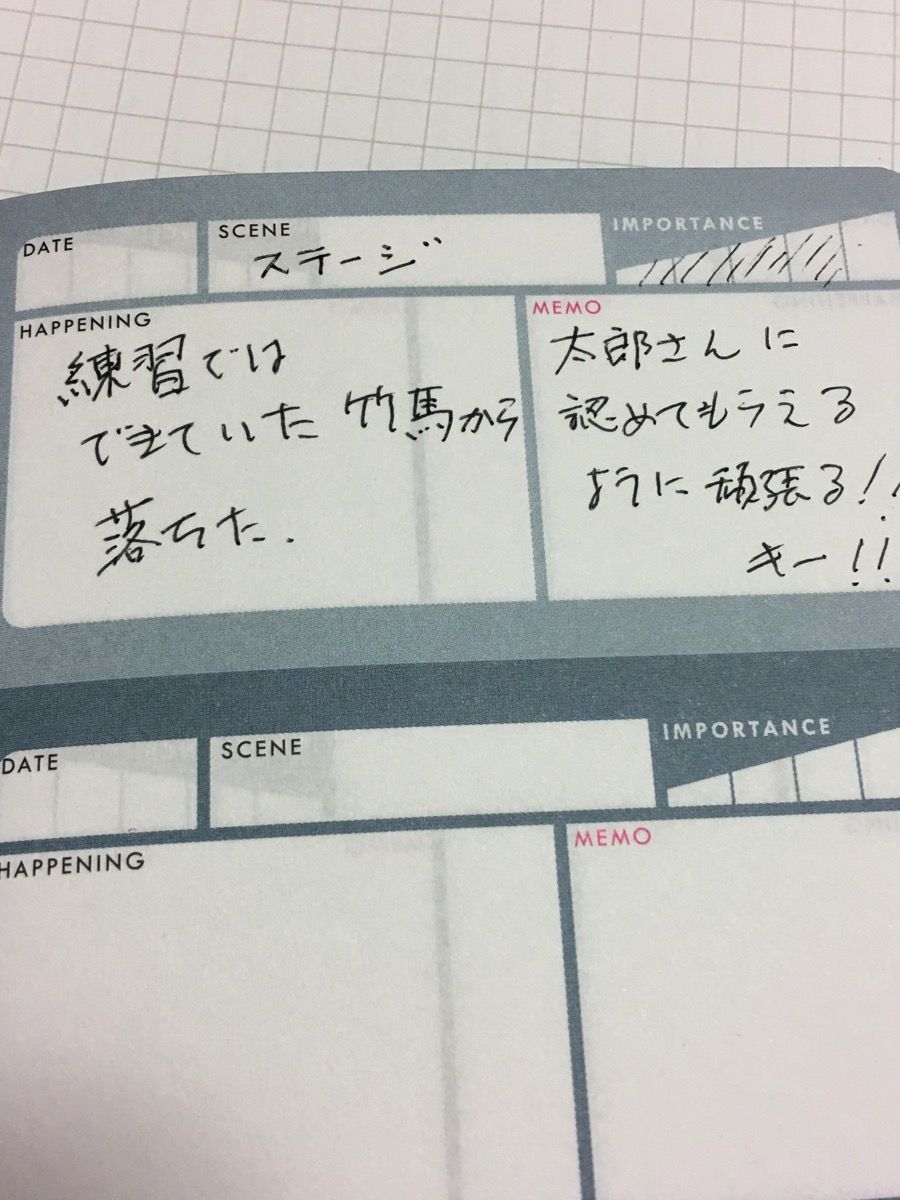 DATE
SCENE
IMPORTANCE
ステージ
HAPPENING
MEMO
練習では
できていた竹馬から
落ちた.
太郎さんに
認めてもらえる
ように頑張る!!
キー!!
DATE
SCENE
IMPORTANCE
HAPPENING
MEMO